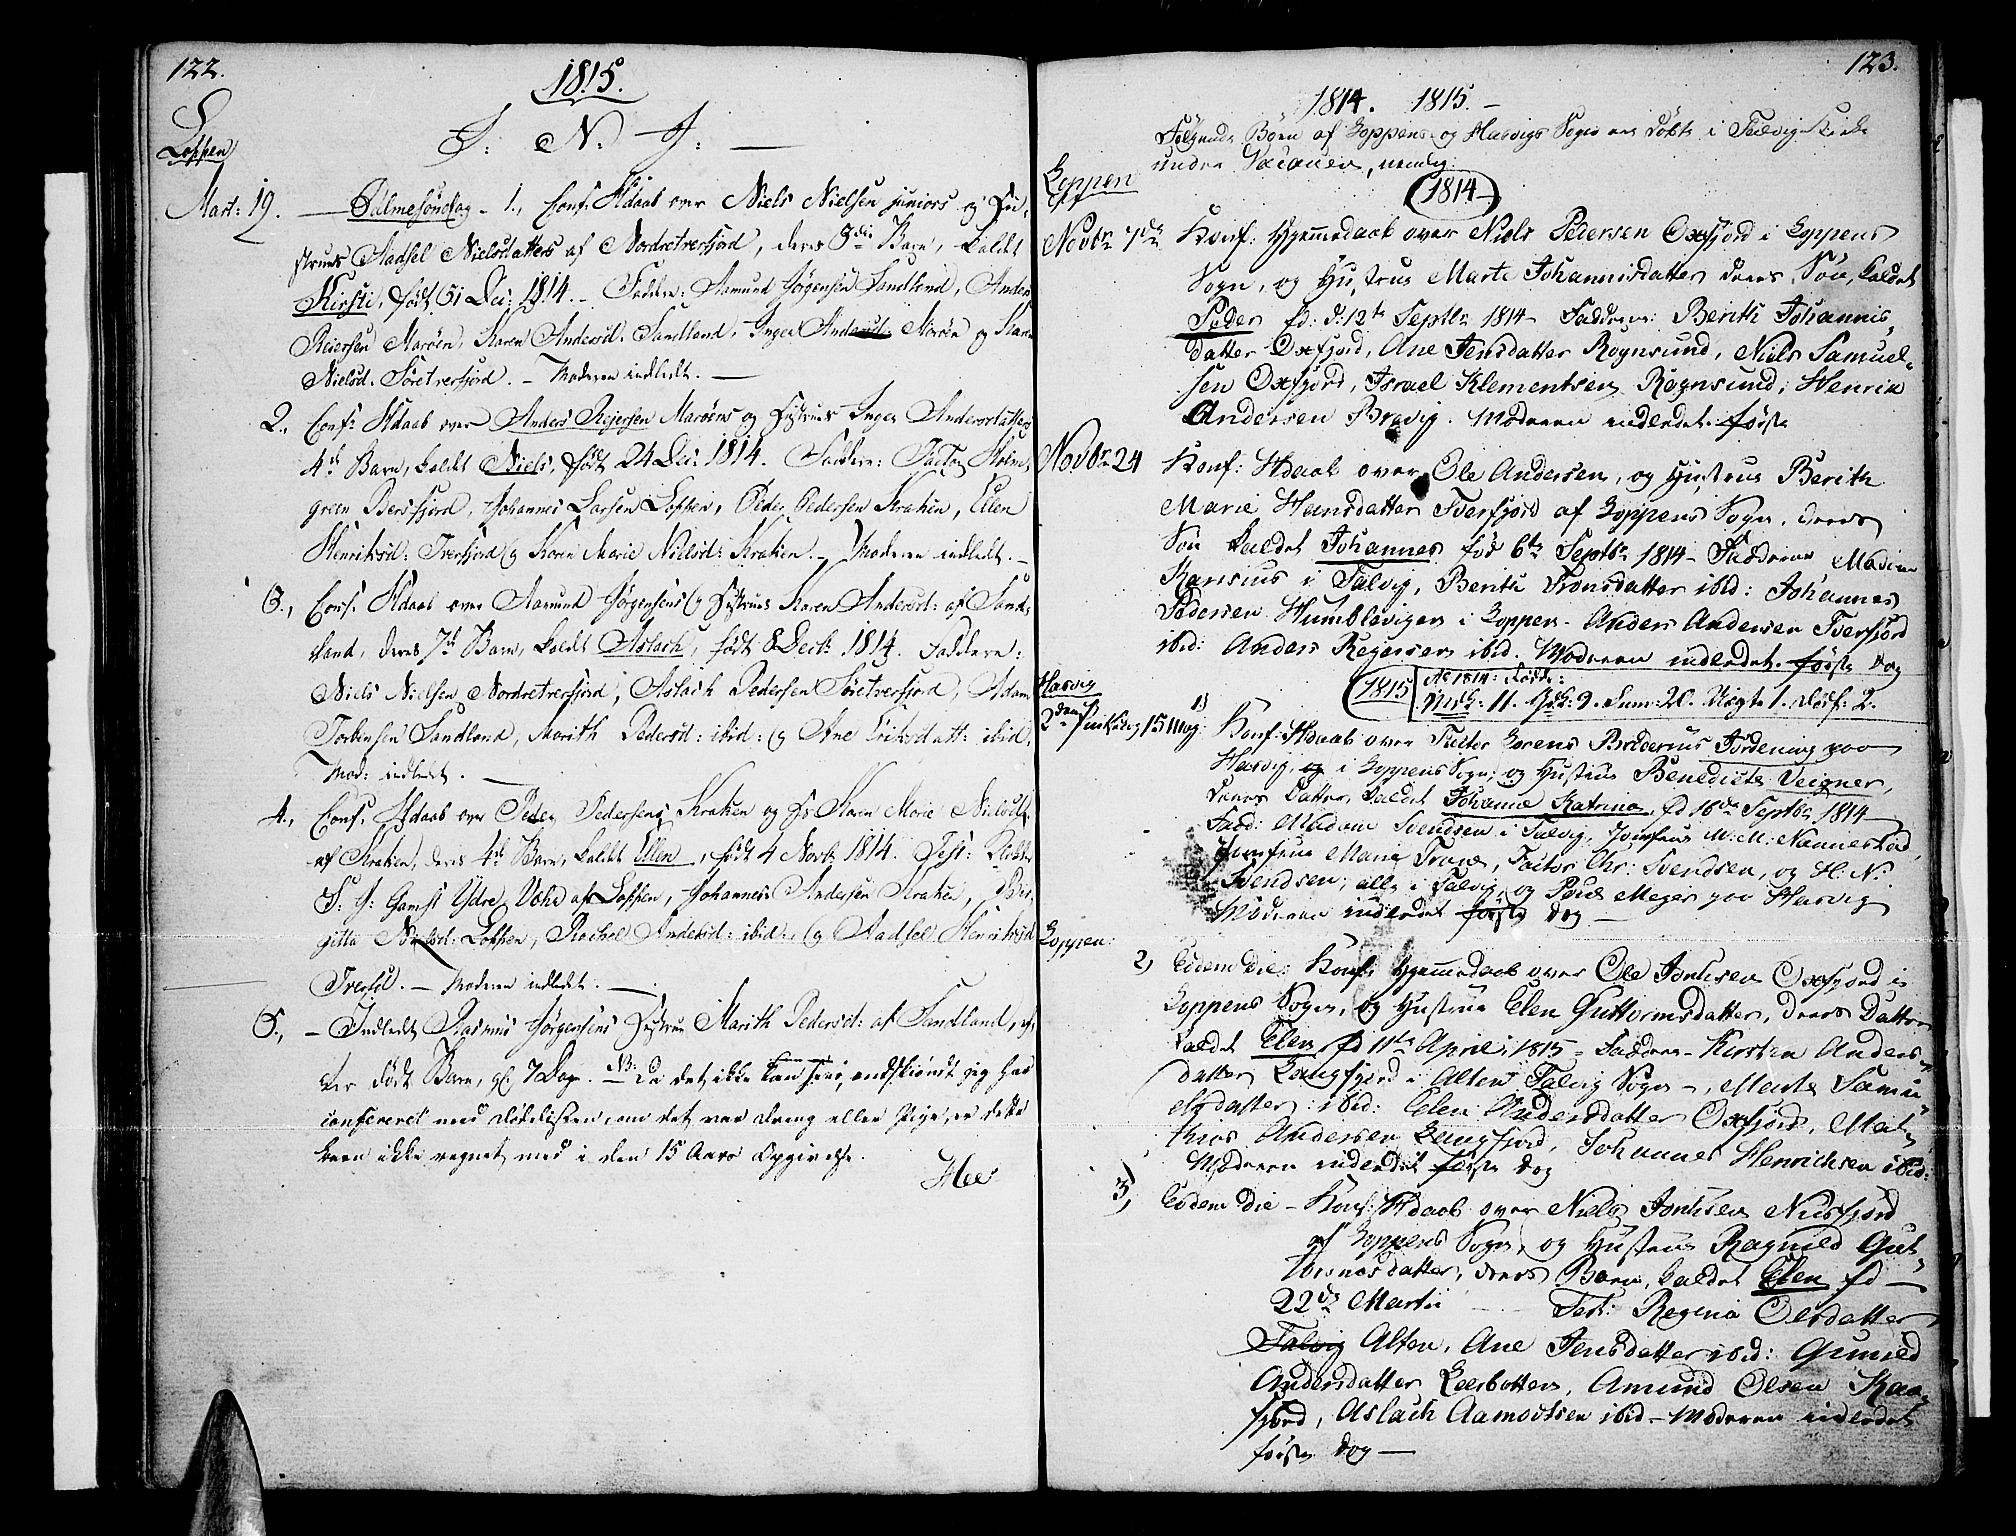 122.
1815.
J: N: J: —
Loppen
Mart: 19. — Palmesöndag - 1., Conf: Hdaab over Niels Nielsen juniors og Hu-
strues Aadsel Nielsdatters af Nordretverfjord, deres 3die Barn, kaldt
Kirsti, födt 31 Dec: 1814. — Faddere: Aamund Jörgensen Sandland, Anders
Reiersen Maröen, Karen Andersd. Sandland, Inger Andersd: Maröen og Karen
Nielsd. Söretverfjord. — Moderen indledt. —
2., Conf: Hdaab over Anders Reiersen Maröens og Hustrues Inger Andersdatters
4de Barn, kaldt Niels, födt 24 Dec: 1814. Faddere: Factor Holm-
green Bersfjord, Johannes Larsen Loppen, Peder Pedersen Kraken, Ellen
Henriksd: Tverfjord og Karen Marie Nielsd: Kraken. — Moderen indledt. —
3., Conf. Hdaab over Aamund Jörgensens og Hustrues Karen Andersd: af Sand-
land, deres 7de Barn, kaldt Aslach, födt 8 Decbr. 1814. Faddere:
Niels Nielsen Nordretverfjord, Aslach Pedersen Söretverfjord, Adam
Torbensen Sandland, Marith Pedersd: ibid: og Ane Eriksdatt: ibid.
Mod: indledt. —
4., Conf. Hdaab over Peder Pedersens Kraken og Hs Karen Marie Nielsdtr.
af Kraken, deres 4de Barn, kaldt Ellen, födt 4 Novbr. 1814. Test:
S: J: Gamst Ydre Vahd af Loppen, Johannes Andersen Kraken, Bir-
gitta Nielsd: Loppen, Rachel Andersd: ibid: og Aadsel Henriksd
Tverfd. — Moderen indledt. —
5., — Indledt Rasmus Jörgensens Hustrue Marith Pedersd: af Sandland, ef-
ter födt Barn, gl. 7 Dage. NB: Da det ikke kan sees, endskiöndt jeg har
confereret med Dödslisten, om det var Dreng eller Pige, er dette
Barn ikke regnet med i den 15 Aars Opgivelse.
Hee
123.
1814. 1815. —
Fölgende Börn af Loppens og Hasvigs Sogn ere döbte i Talvig Kirke
under Vacancen, nemlig:
Loppen
1814
Novbr 7de Konf: Hjemmedaab over Niels Pedersen Oxfjord i Loppens
Sogn, og Hustrue Marte Johannisdatter deres Sön, kaldet
Peder fd: d: 12te Septbr 1814 — Faddrene: Berith Johannis-
datter Oxfjord, Ane Jensdatter Rognsund, Niels Samuel-
sen Oxfjord, Israel Klementsen Rognsund, Henrik
Andersen Bravig. Moderen indledet förste
Novbr 24 Konf: Hdaab over Ole Andersen, og Hustrue Berith
Marie Hansdatter Tverfjord af Loppens Sogn, deres
Sön kaldet Johannes fød 6te Septbr 1814 — Faddrene Madme
Karisius i Talvig, Berith Tronsdatter ibid: Johannes
Pedersen Humblevigen i Loppen — Anders Andersen Tverfjord
ibid: Anders Regersen ibid. Moderen indledet förste dag
1815 Ao 1814: Födte:
Mdk: 11. Qdk: 9. Sum: 20. Uægte 1. Dödf: 2.
Hasvig
2den Pintsedag 15 May: 1) Konf: Hdaab over Factor Lorens Brodernus Fordening paa
Hasvig, og i Loppens Sogn, og Hustrue Benedicte Veigner,
deres Datter kaldet Johanne Katrina fd 16de Septbr 1814
Fadd: Madame Svendsen i Talvig, Jomfrue M: M: Nannestad,
Jomfrue Marie Trane, Factor Chr: Svendsen, og H: N:
Svendsen, alle i Talvig, og Povel Meyer paa Hasvig
Moderen indledet förste dag —
Loppen:
2) Eodem die: Konf: Hjemmedaab over Ole Jonsen Oxfjord i
Loppens Sogn, og Hustrue Elen Guttormsdatter, deres Datter
kaldet Elen fd 11te April 1815 — Faddere — Kirsten Anders-
datter Langfjord i Alten Talvig Sogn —, Marte Samu-
elsdatter ibid: Elen Andersdatter Oxfjord, Mat-
thias Andersen Langfjord, Johannes Henrichsen ibid:
Moderen indledet förste dag
3) Eodem die — Konf: Hdaab over Niels Jonsen Nusfjord
af Loppens Sogn, og Hustrue Ragnild Gut-
tormsdatter, deres Barn, kaldet Elen fd —
22de Martii Test: Regina Olesdatter
Talvig Alten, Ane Jensdatter ibid: Gunild
Andersdatter Leerbotten, Amund Olsen Kaa-
fjord, Aslach Aamodtsen ibid — Moderen indledet
förste dag —